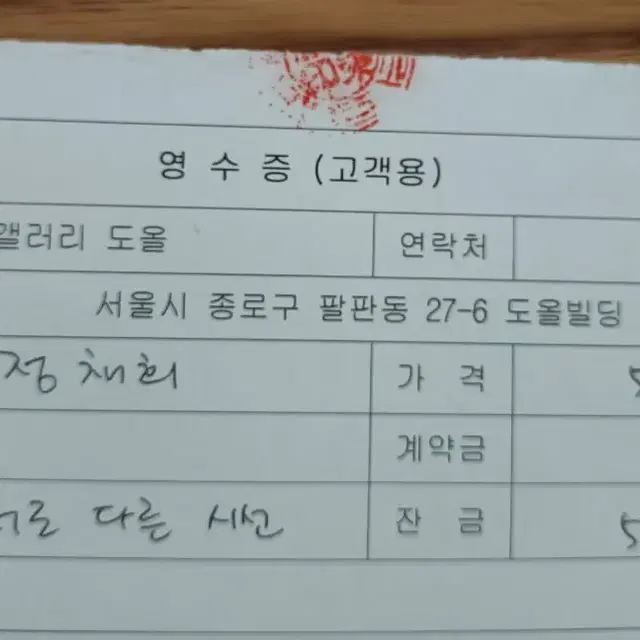 영 수 증 (고객용)
갤러리 도올 연락처
서울시 종로구 팔판동 27-6 도올빌딩
정채희 가 격 5
계약금
서로 다른 시선 잔 금 5